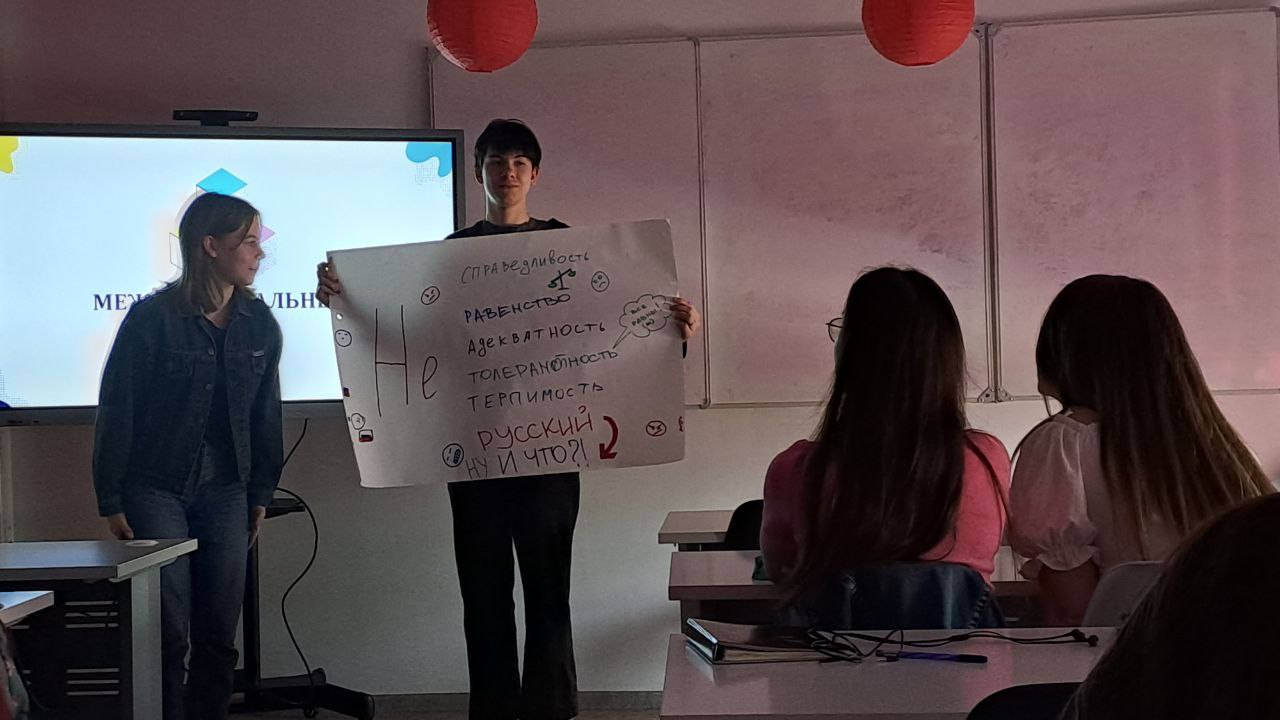 МЕЖ АЛЬН
Не
СПРАВЕДЛИВОСТЬ
РАВЕНСТВО
АДЕКВАТНОСТЬ
ТОЛЕРАНТНОСТЬ
ТЕРПИМОСТЬ
РУССКИЙ
НУ И ЧТО?!
ВСЕ
РАВНЫ!